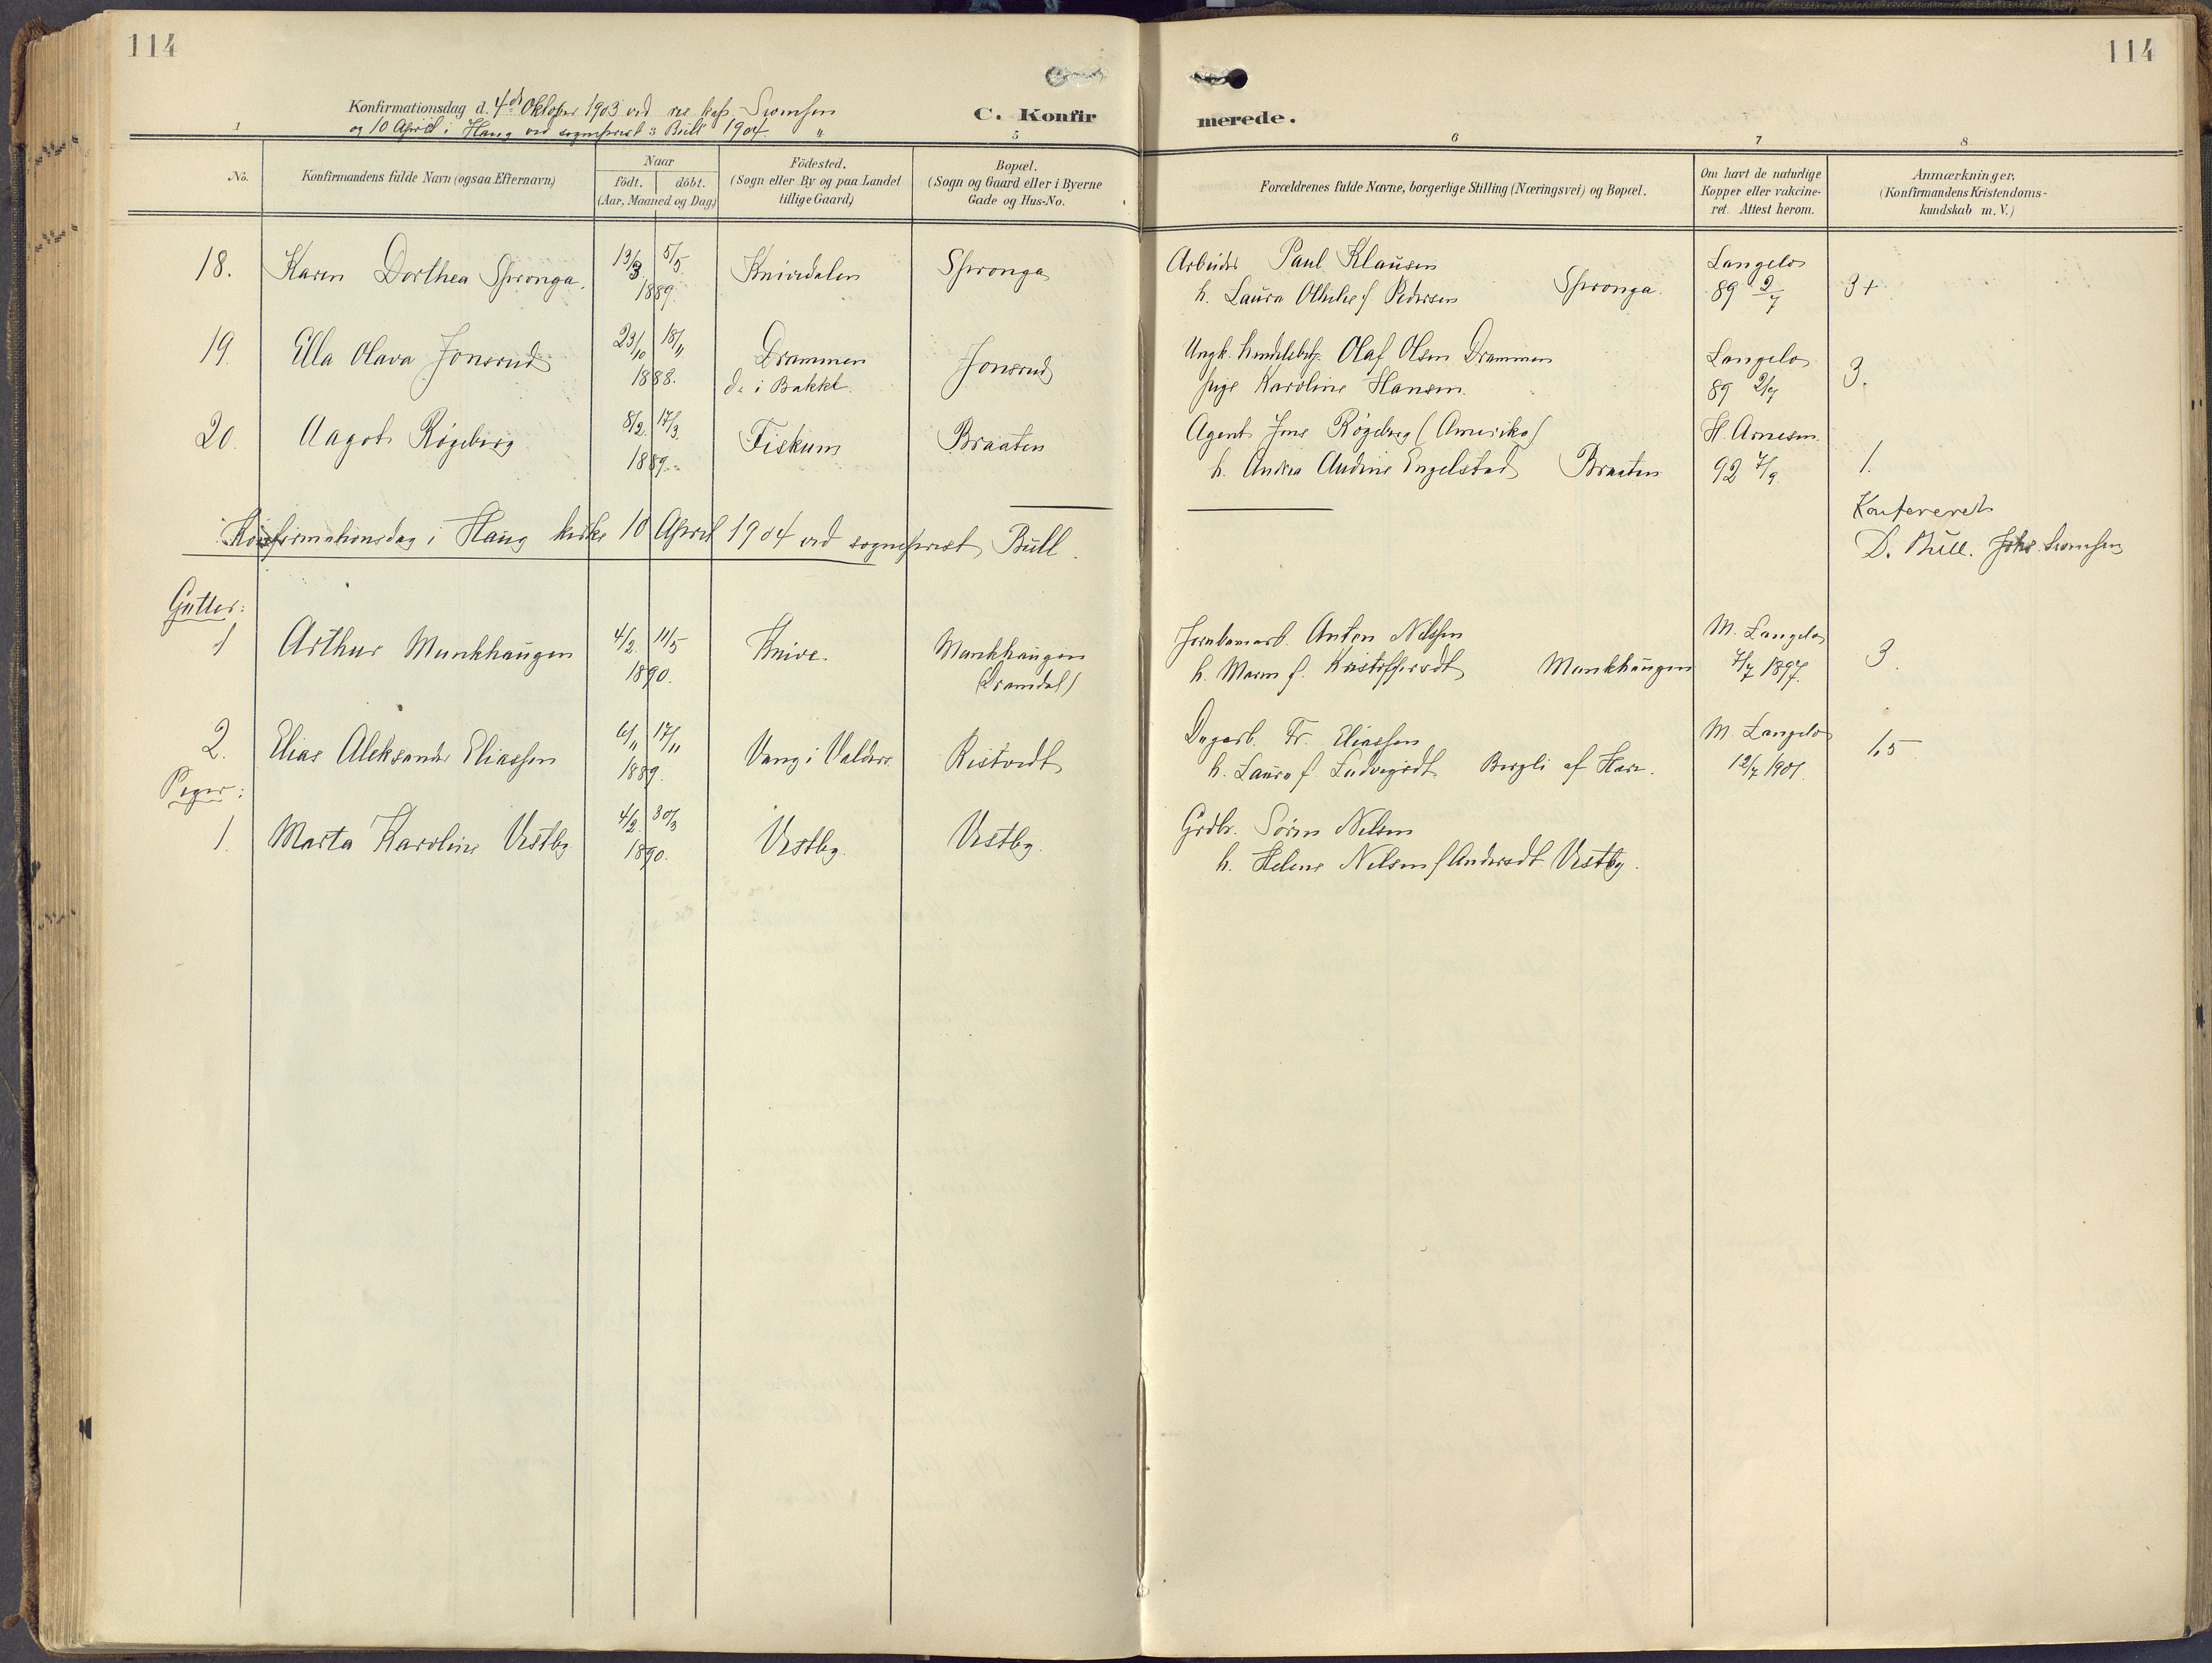 114
114
Konfirmationsdag d. 4de Oktober 1903 ved res kap. Svensen
og 10 April i Haug ved sogneprest Bull 1904.
C. Konfirmerede.
1
5
6
7
8
No.
Konfirmandens fulde Navn (ogsaa Efternavn)
Naar
födt. döbt.
(Aar, Maaned og Dag)
Födested.
(Sogn eller By og paa Landet
tillige Gaard)
Bopæl.
(Sogn og Gaard eller i Byerne
Gade og Hus-No.
Forældrenes fulde Navne, borgerlige Stilling (Næringsvei) og Bopæl.
Om havt de naturlige
Kopper eller vakcine-
ret. Attest herom.
Anmærkninger.
(Konfirmandens Kristendoms-
kundskab m. V.)
18. Karen Dorthea Spronga. 13/3 5/5 Knivedalen Spronga Arbeider Paul Klausen Langelo
1889. h. Laura Othilie f. Pedersen Spronga. 89 2/7 3+
19. Ella Olava Jonsrud 23/10 18/11 Drammen Jonsrud Ungk. Olaf Olsen Drammen Langelo
1888. d. i Bakket. pige Karoline Hansen. 89 2/7 3.
20. Aagot Røgeberg 8/2 17/3 Fiskum Braaten Agent Jens Røgeberg (Amerika) H. Arnesen.
1889. h. Andrea Audine Engelstad Braaten 92 7/9 1.
Konfereret
Konfirmationsdag i Haug kirke 10 April 1904 ved sogneprest Bull.
D. Bull. Johs. Svensen
Gutter:
1 Arthur Munkhaugen 4/2 11/5 Knive. Munkhaugen Jernbanearb. Anton Nilssen M. Langelo
1890. h. Maren f. Kristoffersdt Munkhaugen 7/7 1897. 3.
2. Elias Aleksander Eliassen 6/11 17/11 Vang i Valders Ristvedt Dagarb. Fr. Eliassen M. Langelo
1889. h. Laura f. Ludvigsdt Bergli af Hare. 12/7 1901. 1,5
Piger:
1. Marta Karoline Vestby 4/2 30/3 Vestby. Vestby. Grdbr. Sören Nilsen
1890. h. Helene Nilsen f Andersdt Vestby.